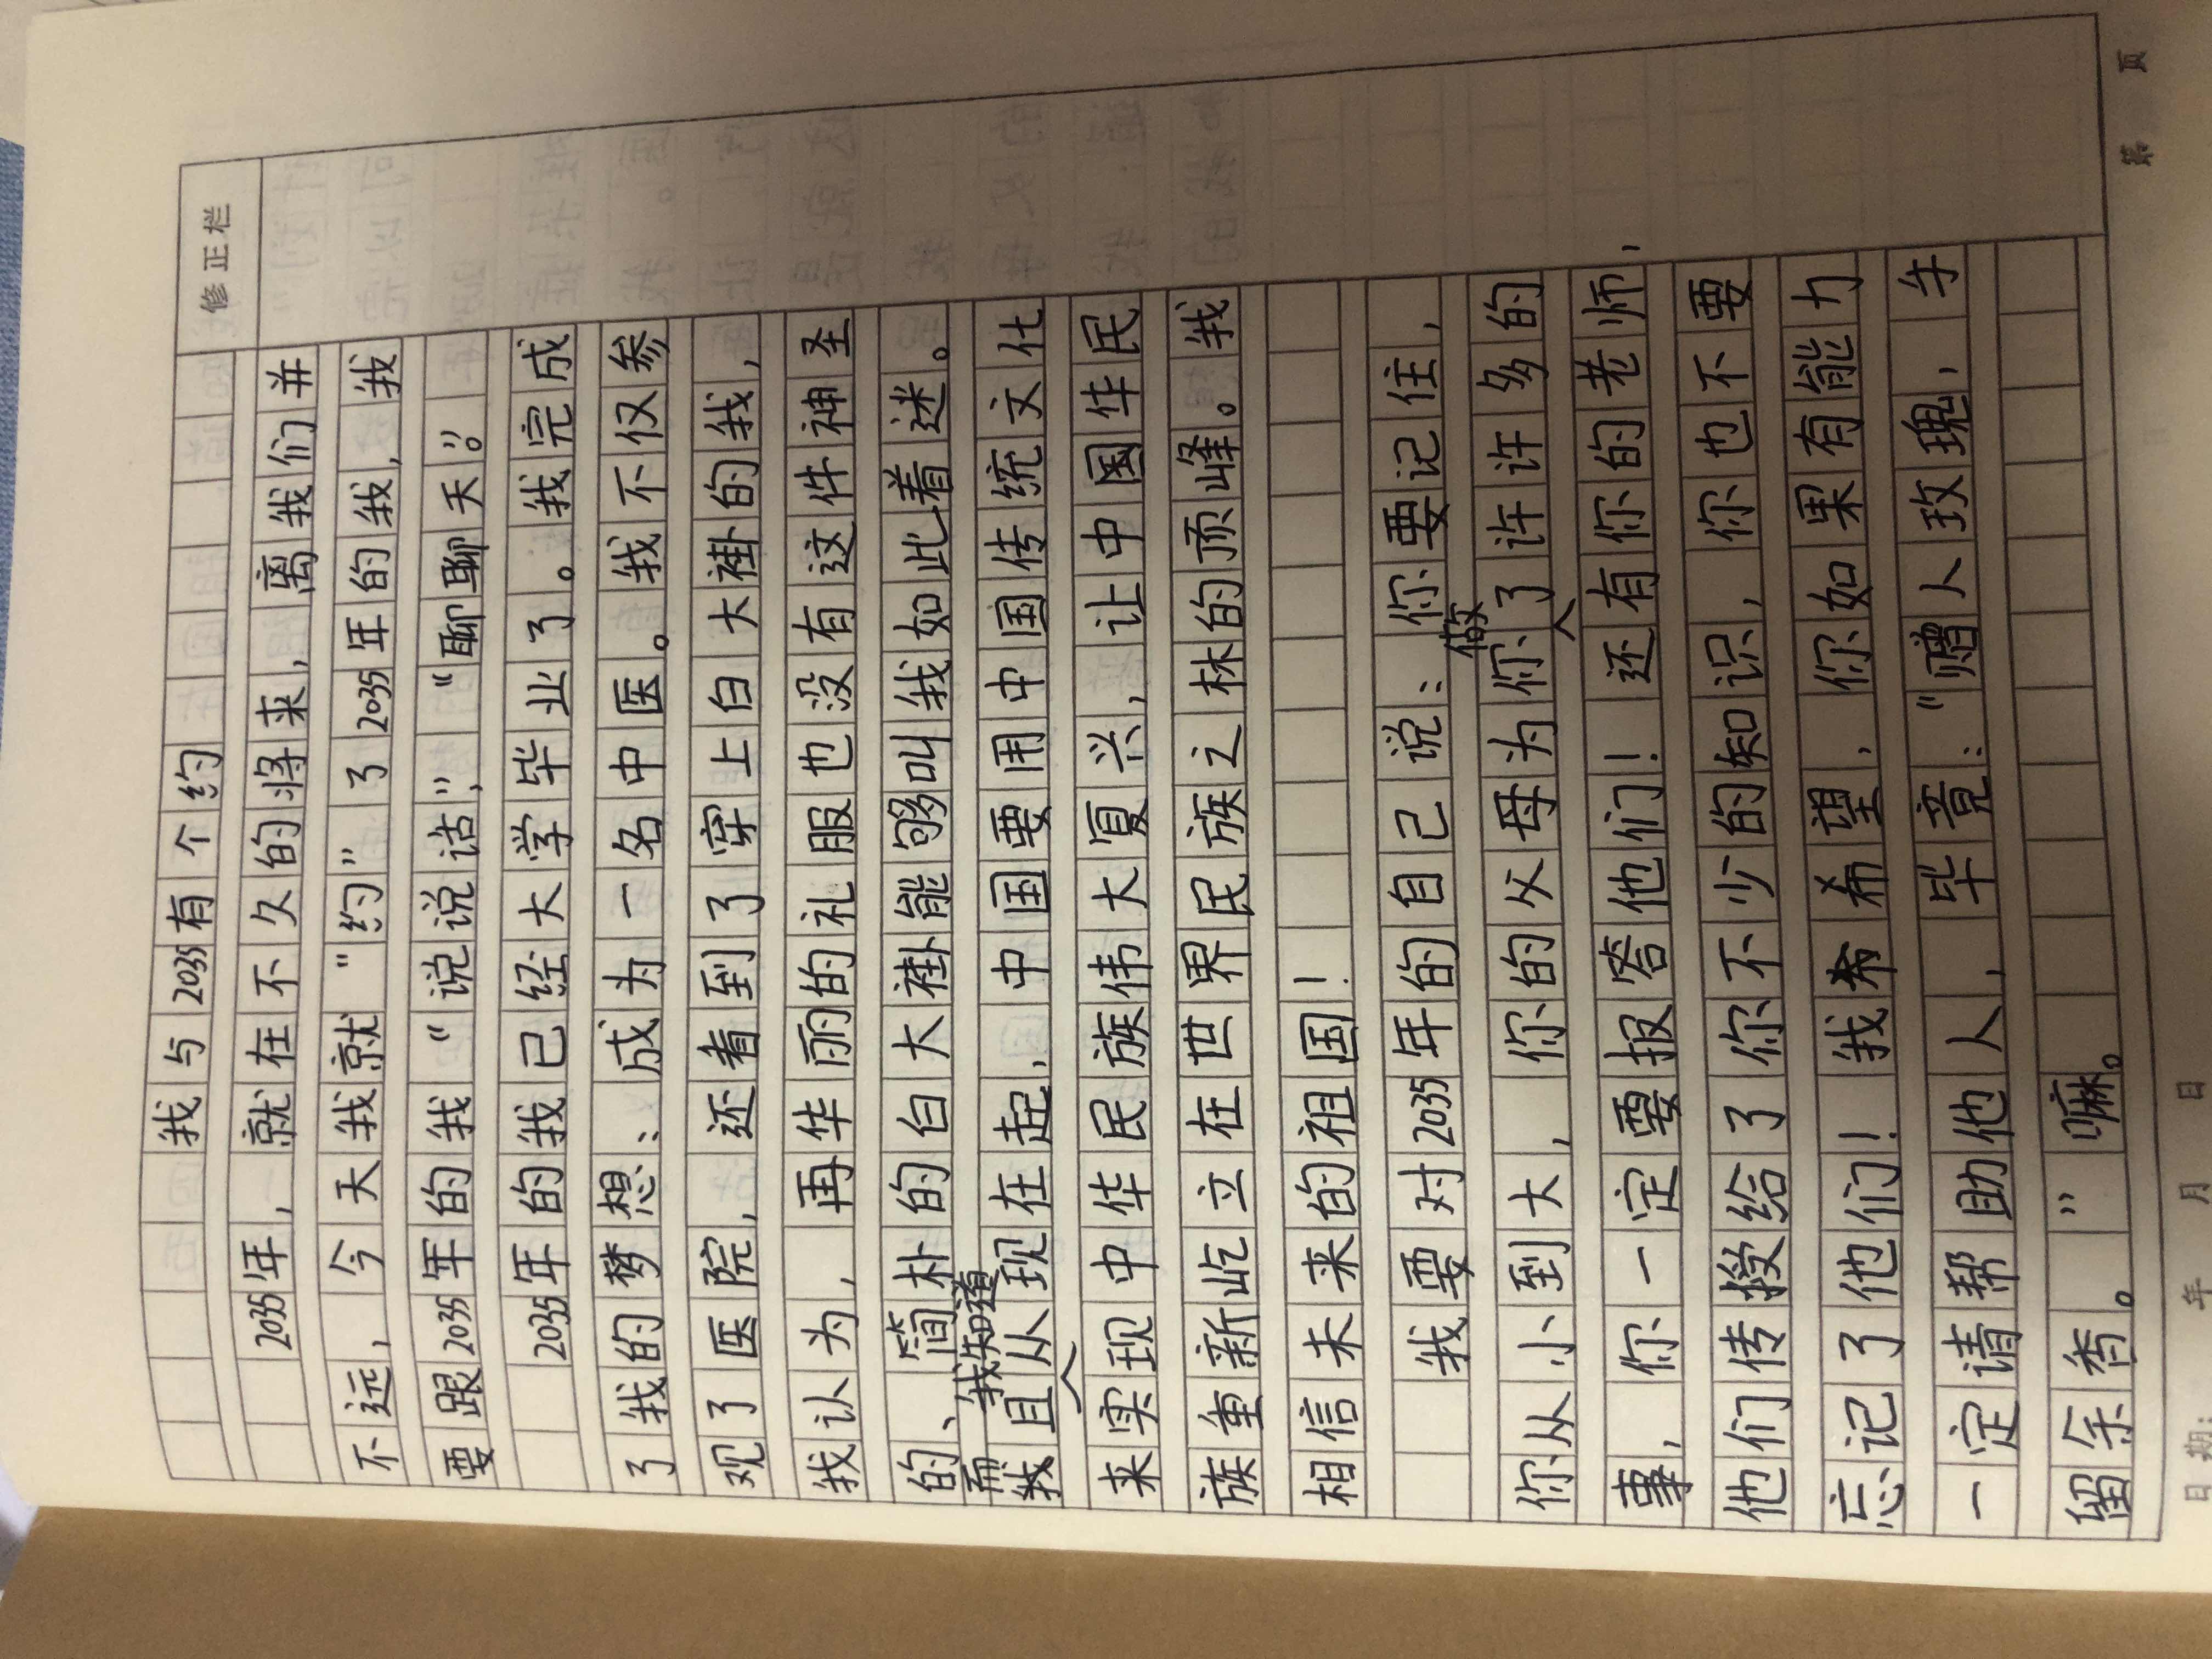 修正栏
我与2035有个约
2035年，就在不久的将来，离我们并
不远，今天我就“约”了2035年的我，我
要跟2035年的我“说说话”，“聊聊天”。
2035年的我已经大学毕业了。我完成
了我的梦想：成为一名中医。我不仅参
观了医院，还看到了穿上白大褂的我，
我认为，再华丽的礼服也没有这件神圣
的、简朴的白大褂能够叫我如此着迷。
而且我知道从现在起，中国要用中国传统文化
来实现中华民族伟大复兴，让中国华民
族重新屹立在世界民族之林的顶峰。我
相信未来的祖国！
我要对2035年的自己说：你要记住，
你从小到大，你的父母为你做了许许多多的
事，你一定要报答他们！还有你的老师，
他们传授给了你不少的知识，你也不要
忘记了他们！我希望，你如果有能力
一定请帮助他人，毕竟：“赠人玫瑰，手
留余香。”嘛。
日期： 年 月 日 第 页